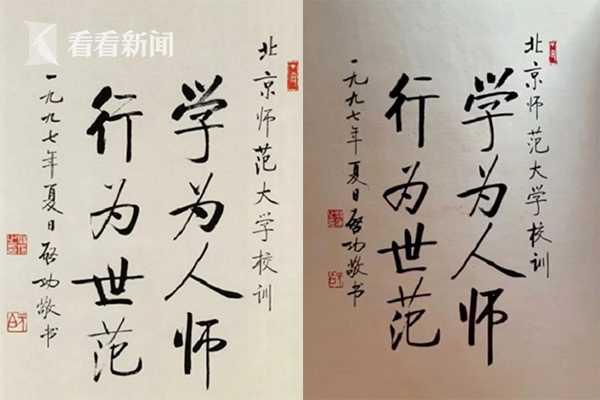 看看新闻
北京师范大学校训
学为人师
行为世范
一九九七年夏日启功敬书
北京师范大学校训
学为人师
行为世范
一九九七年夏日启功敬书